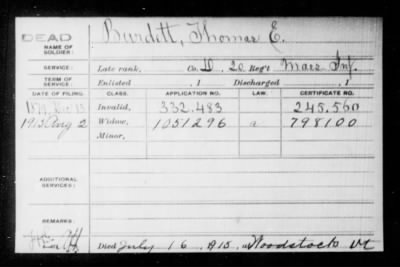 DEAD
NAME OF SOLDIER: Burditt, Thomas E.
SERVICE: Late rank, Co. D, 20 Reg't Mass Inf.
TERM OF SERVICE: Enlisted , 1 Discharged , 1
DATE OF FILING. CLASS. APPLICATION NO. LAW. CERTIFICATE NO.
1879 Invalid, 332.483 245.560
1915 Aug 2 Widow, 1051296 a 798100
Minor,
ADDITIONAL SERVICES:
REMARKS:
Died July 16, 1915, Woodstock Vt